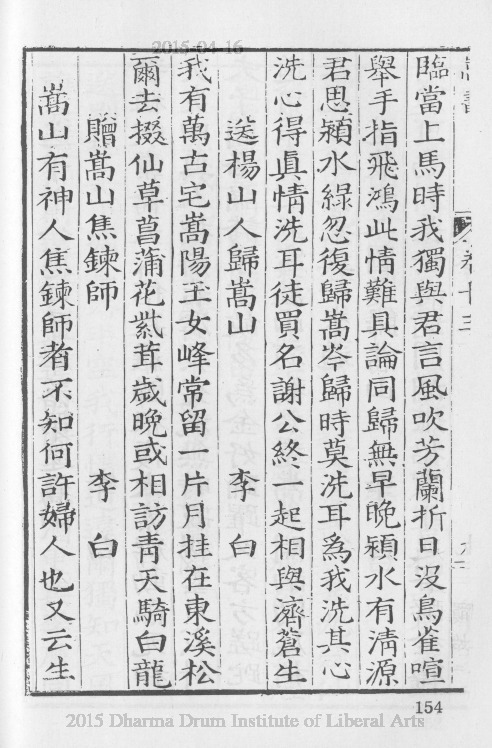 2015-04-16
臨當上馬時我獨與君言風吹芳蘭折日没鳥雀喧
舉手指飛鴻此情難具論同歸無早晚潁水有清源
君思潁水緑忽復歸嵩岑歸時莫洗耳為我洗其心
洗心得真情洗耳徒買名謝公終一起相與濟蒼生
送楊山人歸嵩山 李白
我有萬古宅嵩陽王女峰常留一片月挂在東溪松
爾去掇仙草菖蒲花紫茸歲晚或相訪青天騎白龍
贈嵩山焦鍊師 李白
嵩山有神人焦鍊師者不知何許婦人也又云生
154
2015 Dharma Drum Institute of Liberal Arts